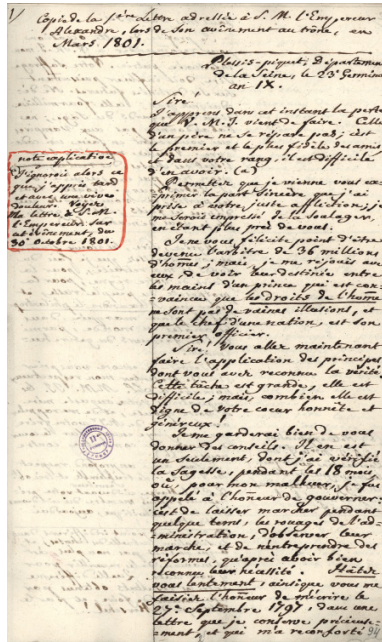 1)
Copie de la 1.ère Lettre adressée à S. M. l'Empereur
Alexandre, lors de Son avènement au trône, en
Mars 1801.
Plessis-piquet, Département
de la Seine, le 23 Germinal
an IX.
Sire!
J'apprens dans cet instant la perte
que V. M. I. vient de faire. Celle
d'un père ne se répare pas; c'est
le premier et le plus fidèle des amis
et dans votre rang, il est difficile
d'en avoir. (a)
Permettez que je vienne vous ex-
primer la part sincère que j'ai
prise à votre juste affliction; je
me serois empressé de la soulager,
en étant plus près de vous.
Je ne vous félicite point d'être
devenu l'arbitre de 36 millions
d'homes; mais, je me réjouis avec
eux, de voir leur destinée entre
les mains d'un prince qui est con-
vaincu que les droits de l'homme
ne sont pas de vaines illusions, et
que le chef d'une nation, est son
premier officier.
Sire! Vous allez maintenant
faire l'application des principes
dont vous avez reconnu la vérité.
Cette tâche est grande, elle est
difficile; mais, combien elle est
digne de votre coeur honnête et
généreux!
Je me garderai bien de vous
donner des conseils. Il en est
un seulement, dont j'ai vérifié
la Sagesse, pendant les 18 mois
où, pour mon malheur, je fus
appelé à l'honeur de gouverner:
c'est de laisser marcher pendant
quelque tems, les rouages de l'ad-
ministration, d'observer leur
marche, et de n'entreprendre des
réformes, qu'après avoir bien
reconnu leur réalité. Hâtez
vous lentement, ainsique vous me
faisiez l'honneur de m'écrire le
27.e Septembre 1797, dans une
lettre que je conserve précieuse-
ment, et qui m'a reconforté
note explicative
J'ignorois alors ce
que j'appris tard
et avec une vive
douleur. Voyez
ma lettre à S. M.
l'Empereur sur
cet évènement, du
30 Octobre 1801.